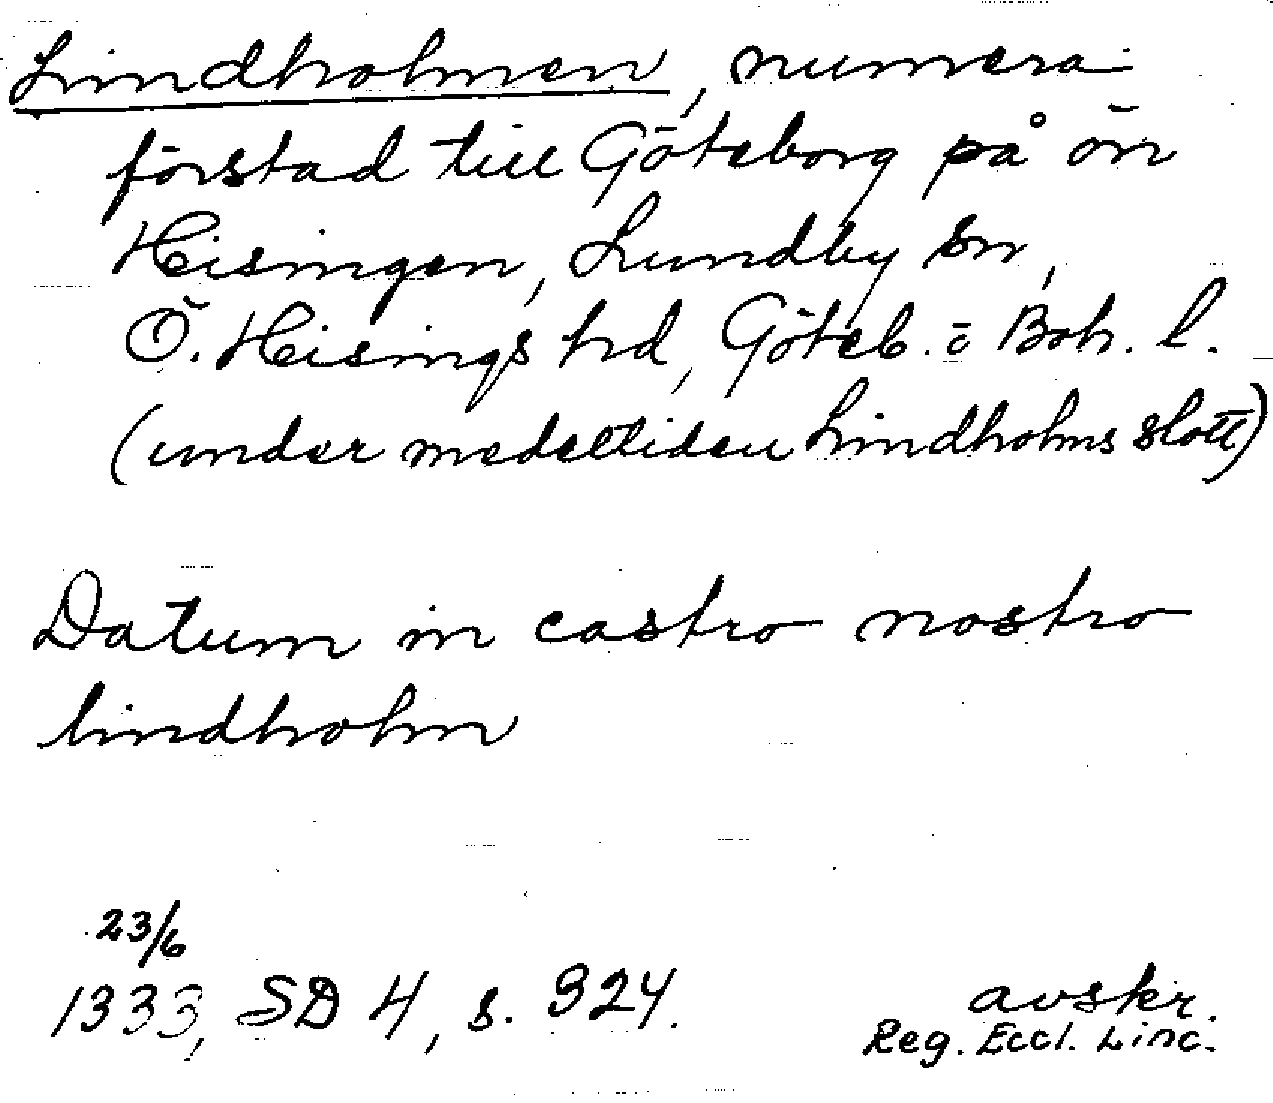 Lindholmen, numera
förstad till Göteborg på ön
Hisingen, Lundby sn,
Ö. Hisings hd, Göteb. o Boh. l.
(under medeltiden Lindholms slott)
Datum in castro nostro
lindholm
23/6
1333, SD 4, s. 324.
avskr.
Reg. Eccl. Linc.